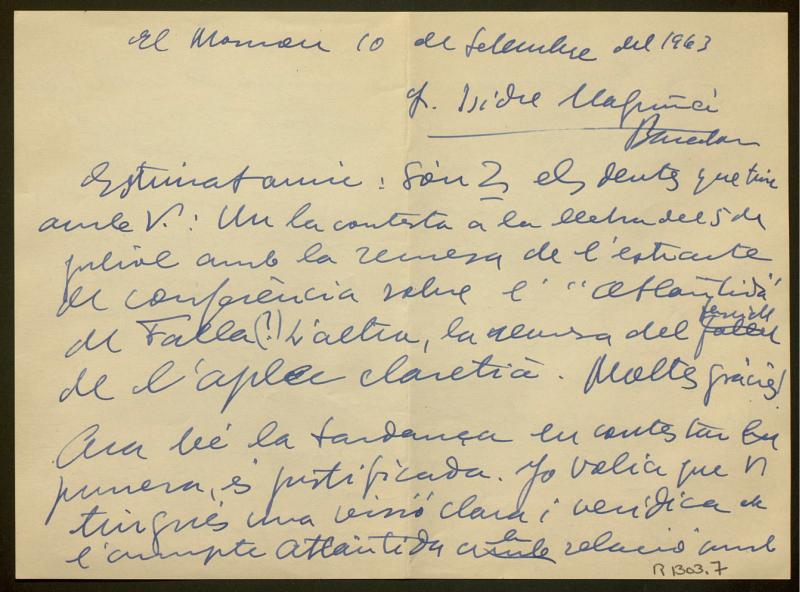 El Masnou 10 de Setembre del 1963
Sr. Isidre Magriñá
Barcelona
Estimat amic: Són 2 els deutes que tinc
amb V.: Un la contesta a la lletra del 5 de
juliol amb la remesa de l'estracte
de conferència sobre l' "Atlàntida"
de Falla (!) L'altra, la remesa del
de l'aplec claretià. Moltes gràcies!
Ara bé la tardança en contestar la
primera, és justificada. Jo volia que V
tingués una visió clara i verídica de
l'assumpte Atlàntida en relació amb
R 1303.7